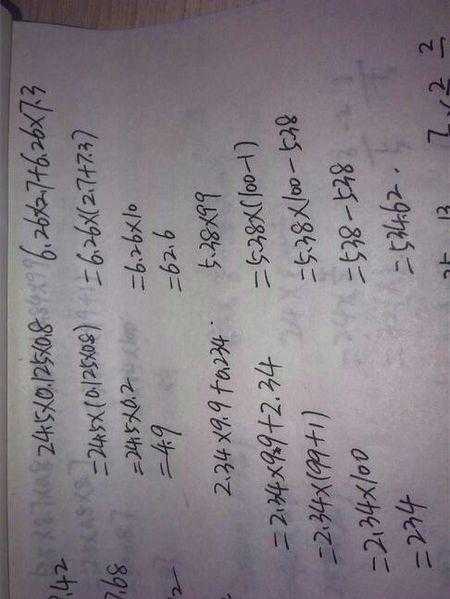 .42
7.68
24.5×0.125×0.8
=24.5×(0.125×0.8)
=24.5×0.2
=4.9
6.26×2.7+6.26×7.3
=6.26×(2.7+7.3)
=6.26×10
=62.6
2.34×9.9+0.234
=2.34×9.9+2.34
=2.34×(99+1)
=2.34×100
=234
5.38×99
=5.38×(100-1)
=5.38×100-5.38
=538-5.38
=534.62.